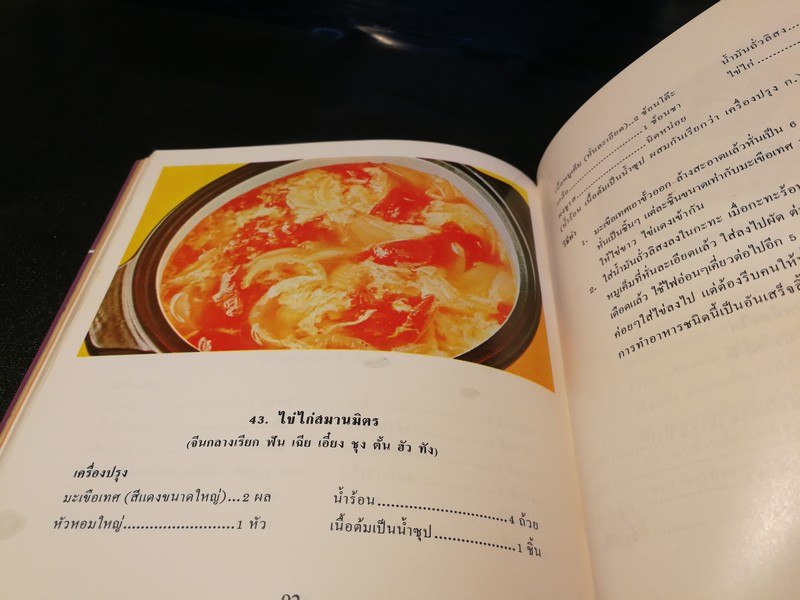 43. ไข่ไก่สมานมิตร
(จีนกลางเรียก ฟัน เฉีย เอี๋ยง ชุง ตั้น ฮัว ทัง)
เครื่องปรุง
มะเขือเทศ (สีแดงขนาดใหญ่)...2 ผล
หัวหอมใหญ่.........................1 หัว
น้ำร้อน..............................4 ถ้วย
เนื้อต้มเป็นน้ำซุป...................1 ชิ้น
น้ำมันถั่วลิสง....
ไข่ไก่............
(หั่นละเอียด)..2 ช้อนโต๊ะ
1 ช้อนชา
นิดหน่อย
(น้ำร้อน เนื้อต้มเป็นน้ำซุป ผสมกันเรียกว่า เครื่องปรุง ก.)
วิธีทำ
1. มะเขือเทศเอาขั้วออก ล้างสะอาดแล้วหั่นเป็น 6
หั่นเป็นชิ้นๆ แต่ละชิ้นขนาดเท่ากับมะเขือเทศ
ให้ไข่ขาว ไข่แดงเข้ากัน
2. ใส่น้ำมันถั่วลิสงลงในกะทะ เมื่อกะทะร้อ
หมูเค็มที่หั่นละเอียดแล้ว ใส่ลงไปผัด
เดือดแล้ว ใช้ไฟอ่อนๆเคี่ยวต่อไปอีก 5
ค่อยๆใส่ไข่ลงไป แต่ต้องรีบคนให้
การทำอาหารชนิดนี้เป็นอันเสร็จ